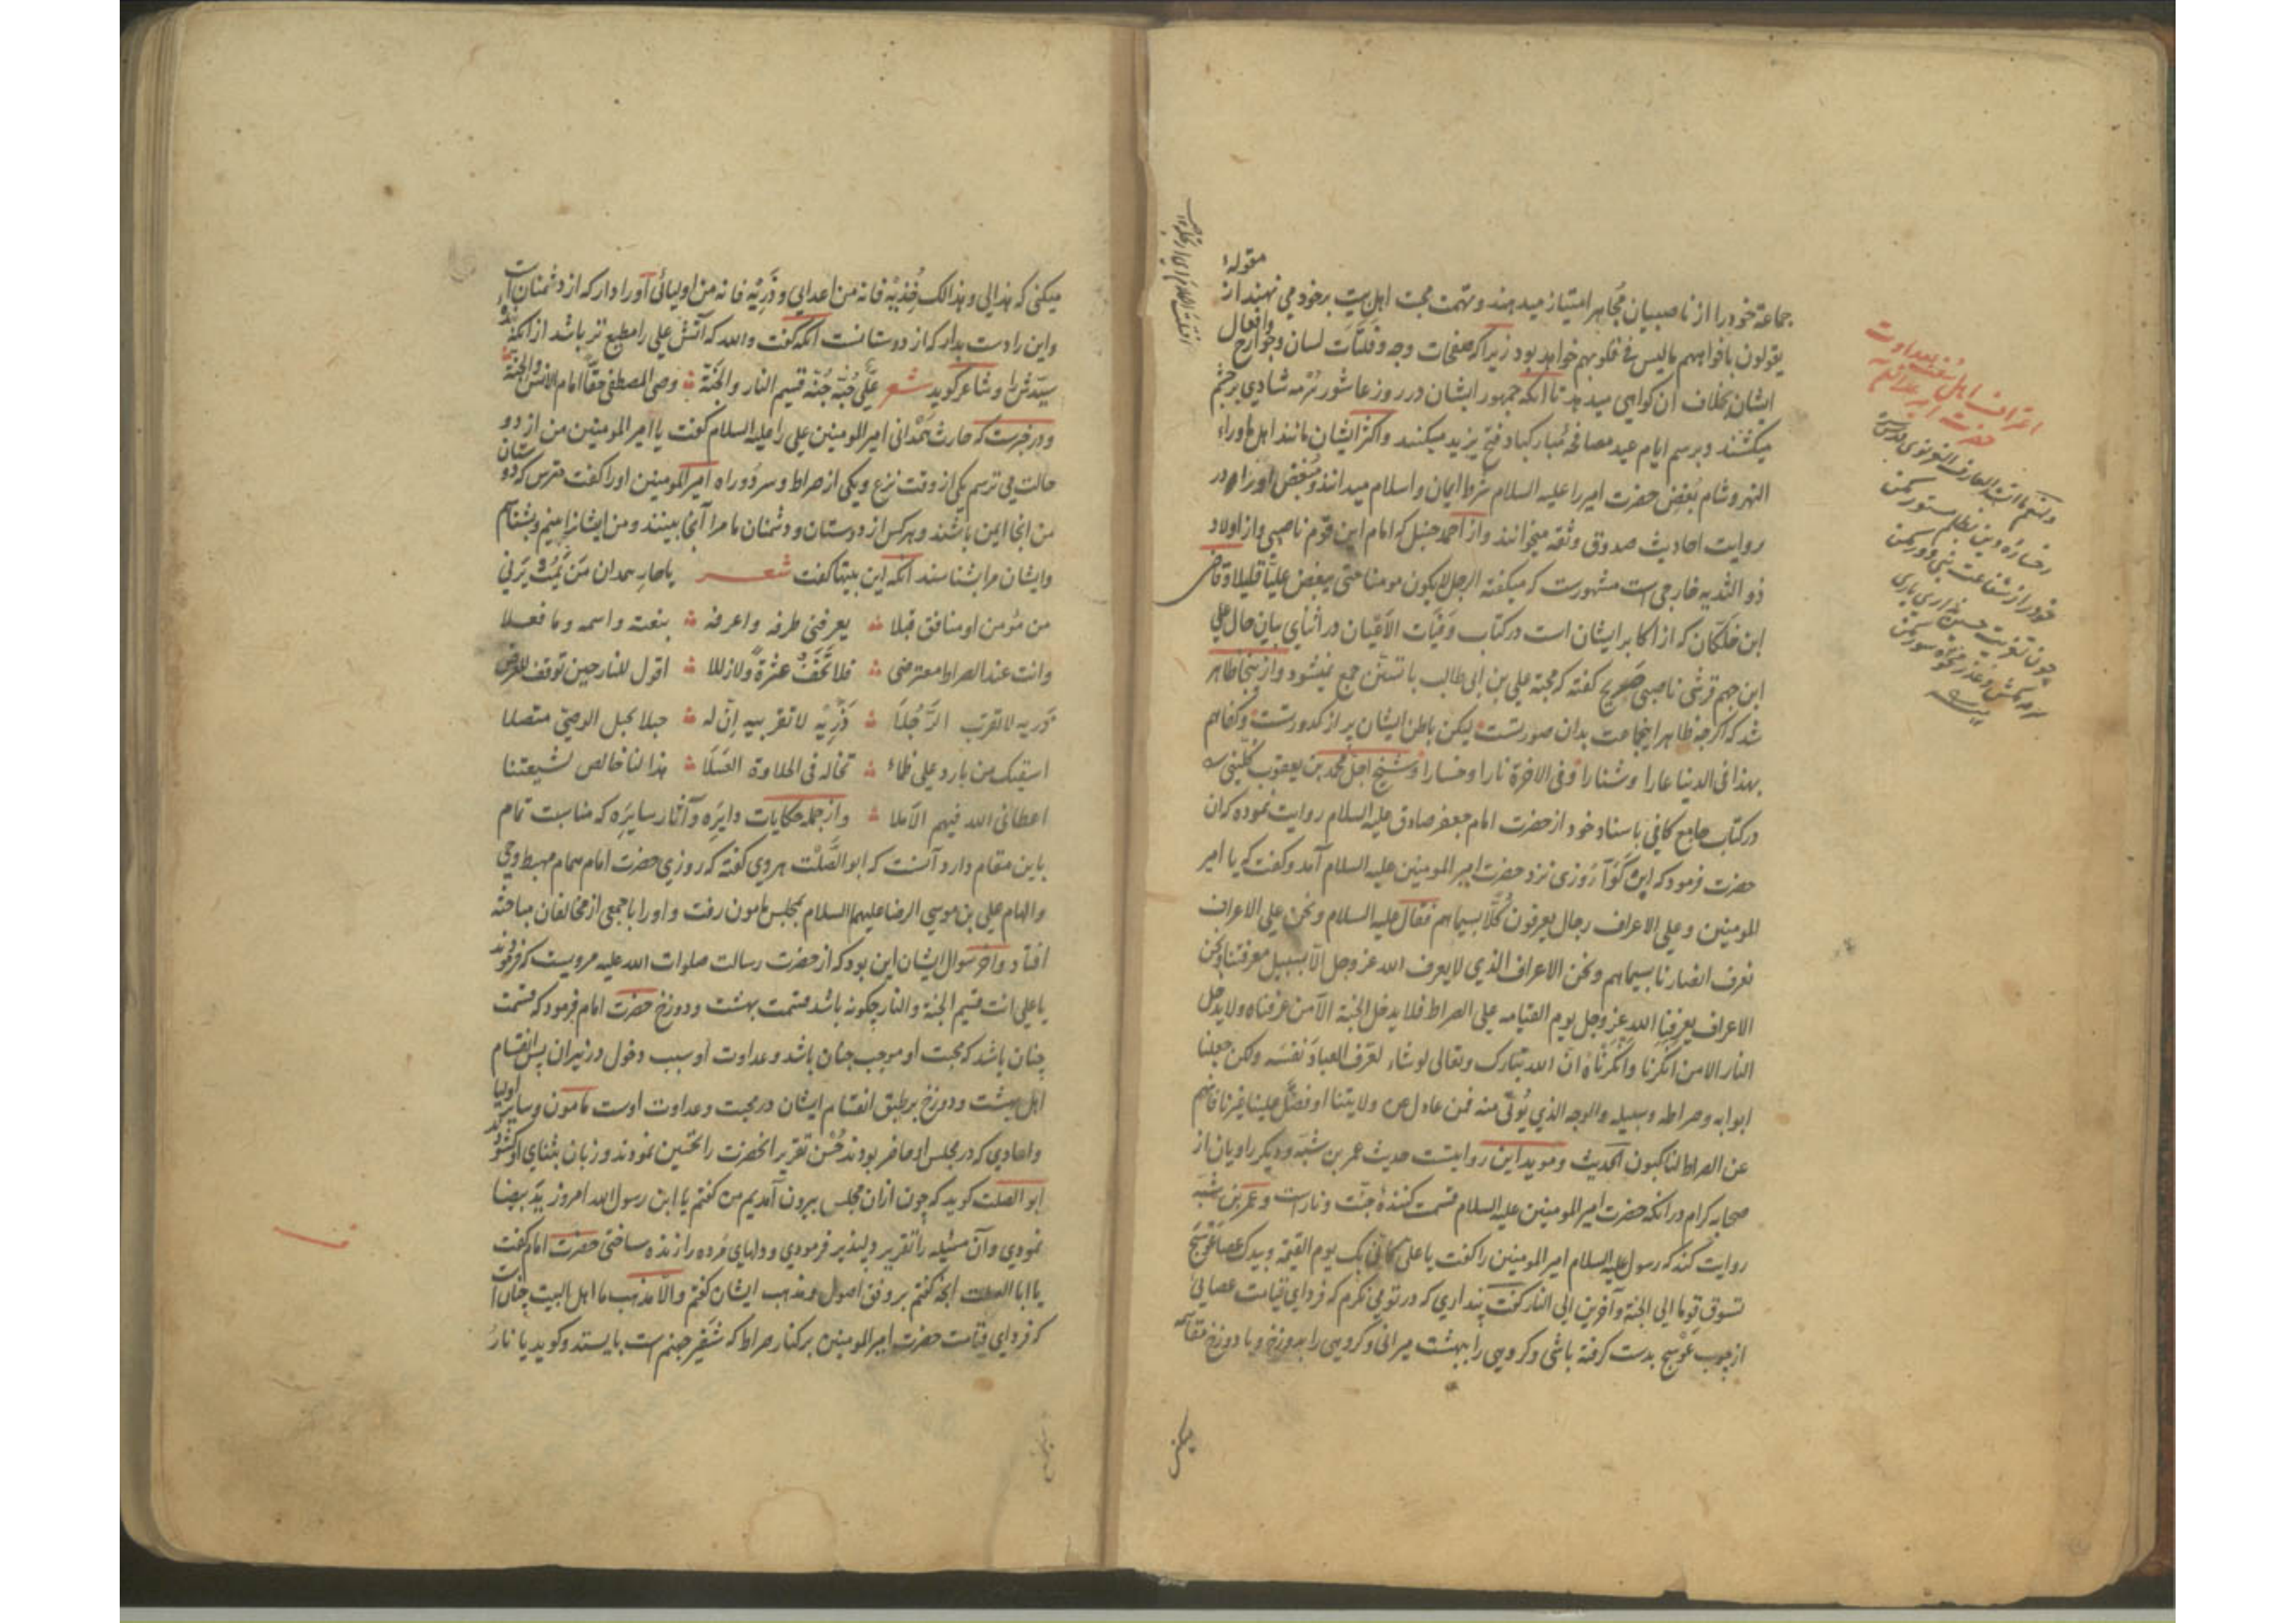 مقوله
جماعة خود را از ناصبيان مجاهر امتياز ميدهند و تهمت محبت اهل بيت بر خود مي نهند از
يقولون بافواههم ما ليس في قلوبهم خواهد بود زيرا كه صفحات وجه و فلتات لسان و جوارح وافعال
ايشان بخلاف آن كواهي ميدهد تا آنكه جمهور ايشان در روز عاشور سرمه شادي بر چشم
ميكشند و برسم ايام عيد مصافحه مباركباد فتح يزيد ميكنند و اكثر ايشان مانند اهل ماوراء
النهر و شام بغض حضرت امير را عليه السلام شرط ايمان و اسلام ميدانند و مبغض او را در
روايت احاديث صدوق و ثقه ميخوانند و از احمد حنبل كه امام اين قوم ناصبي و از اولاد
ذو الثديه خارجي است مشهورست كه ميكفته الرجل لا يكون مومنا حتى يبغض عليا قليلا و قاضى
ابن خلكان كه از اكابر ايشان است در كتاب وفيات الاعيان در اثناي بيان حال علي
ابن جهم قرشى ناصبي صريح كفته كه محبة علي بن ابي طالب با تسنن جمع نميشود و از اينجا ظاهر
شد كه اكرچه ظاهر اينجماعت بدان صورتست ليكن باطن ايشان پر از كدورتست وكفاهم
بهذا في الدنيا عارا وشنارا وفي الاخرة نارا وخسارا و شيخ اجل محمد بن يعقوب كليني
در كتاب جامع كافي باسناد خود از حضرت امام جعفر صادق عليه السلام روايت نموده كه آن
حضرت فرمود كه ابن كوّا روزى نزد حضرت امير المومنين عليه السلام آمد و كفت كه يا امير
المومنين وعلى الاعراف رجال يعرفون كلا بسيماهم فقال عليه السلام ونحن على الاعراف
نعرف انصارنا بسيماهم ونحن الاعراف الذي لا يعرف الله عز وجل الا بسبيل معرفتنا ونحن
الاعراف يعرفنا الله عز وجل يوم القيامه على الصراط فلا يدخل الجنة الا من عرفناه ولا يدخل
النار الا من انكرنا وانكرناه ان الله تبارك وتعالى لو شاء لعرف العباد نفسه ولكن جعلنا
ابوابه وصراطه وسبيله والوجه الذي يؤتى منه فمن عادل عن ولايتنا او فضل علينا غيرنا فانهم
عن الصراط لناكبون الحديث و مويد اين روايتست حديث عمر بن شبه و ديكر راويان از
صحابه كرام در آنكه حضرت امير المومنين عليه السلام قسمت كننده جنت و نارست و عمر بن شبه
روايت كند كه رسول عليه السلام امير المومنين را كفت يا علي كاني بك يوم القيمة وبيدك عصا عوسج
تسوق قوما الى الجنة وآخرين الى النار كفت پنداري كه در تو مي نكرم كه فرداي قيامت عصايي
از چوب عوسج بدست كرفته باشى و كروهى را ببهشت ميرانى و كروهى را بدوزخ و با دوزخ مقاسمه
ميكنى
اعتراف اهل سنت بعداوت
حضرت امير عليه السلام
ميكنى كه هذا لي وهذا لك خذيه فانه من اعدايي وذريه فانه من اوليائي او را دار كه از دشمنانست
و اين را دست بدار كه از دوستانست آنكه كفت والله كه آتش علي را مطيع تر باشد از آنكه بنده
سيدش را و شاعر كويد شعر علي حبه جنة قسيم النار والجنة وصي المصطفى حقا امام الانس والجنة
و در خبرست كه حارث همدانى امير المومنين علي را عليه السلام كفت يا امير المومنين من از دو
حالت مي ترسم يكي از وقت نزع و يكي از صراط و سر دو راه امير المومنين او را كفت مترس كه دوستان
من از انجا ايمن باشند و هر كس از دوستان و دشمنان ما مرا آنجا بينند و من ايشانرا بينم و بشناسم
و ايشان مرا بشناسند آنكه اين بيتها كفت شعر يا حار همدان من يمت يرني
من مؤمن او منافق قبلا يعرفني طرفه واعرفه بنعته واسمه وما فعلا
وانت عند الصراط معترضى فلا تخف عثرة ولا زللا اقول للنار حين توقف للعرض
ذريه لا تقرب الرجلا ذريه لا تقربيه ان له حبلا بحبل الوصي متصلا
اسقيك من بارد على ظماء تخاله في الحلاوة العسلا هذا لنا خالص لشيعتنا
اعطاني الله فيهم الاملا و از جمله حكايات دايره و آثار سايره كه مناسبت تمام
باين مقام دارد آنست كه ابو الصلت هروي كفته كه روزي حضرت امام همام مهبط وحي
والهام علي بن موسي الرضا عليهما السلام بمجلس مامون رفت و او را با جمعى از مخالفان مباحثه
افتاد و آخر سوال ايشان اين بود كه از حضرت رسالت صلوات الله عليه مرويست كه فرمودند
يا علي انت قسيم الجنة والنار چكونه باشد قسمت بهشت و دوزخ حضرت امام فرمود كه قسمت
چنان باشد كه محبت او موجب جنان باشد و عداوت او سبب دخول در نيران پس انقسام
اهل بهشت و دوزخ بر طبق انقسام ايشان در محبت و عداوت اوست مامون و ساير اوليا
و اعادي كه در مجلس او حاضر بودند حسن تقرير آنحضرت را تحسين نمودند و زبان بثناي او كشودند
ابو الصلت كويد كه چون از ان مجلس بيرون آمديم من كفتم يا ابن رسول الله امروز يد بيضا
نمودي و آن مسئله را تقرير دلپذير فرمودي و دلهاي مرده را زنده ساختى حضرت امام كفت
يا ابا الصلت آنچه كفتم بر وفق اصول و مذهب ايشان كفتم والا مذهب ما اهل البيت چنانست
كه فرداي قيامت حضرت امير المومنين بر كنار صراط كه شفير جهنم است بايستد و كويد يا نار